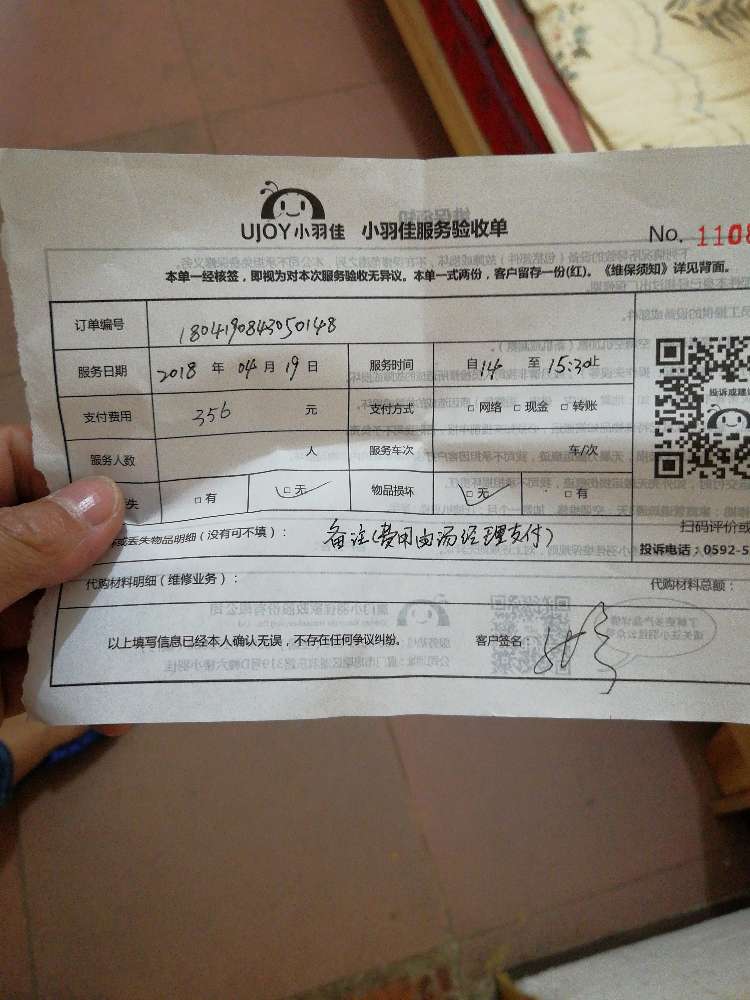 UJOY小羽佳 小羽佳服务验收单
No. 1108
本单一经核签，即视为对本次服务验收无异议。本单一式两份，客户留存一份(红)。《维保须知》详见背面。
订单编号 1804190843050148
服务日期 2018 年 04 月 19 日 服务时间 自 14 至 15:30 止
支付费用 356 元 支付方式 □ 网络 □ 现金 □ 转账
服务人数 人 服务车次 车/次
失 □ 有 □ 无 物品损坏 □ 无 □ 有
投诉或建
或丢失物品明细（没有可不填）： 备注(费用由汤经理支付)
扫码评价或
投诉电话：0592-5
代购材料明细（维修业务）： 代购材料总额：
以上填写信息已经本人确认无误，不存在任何争议纠纷。 客户签名：